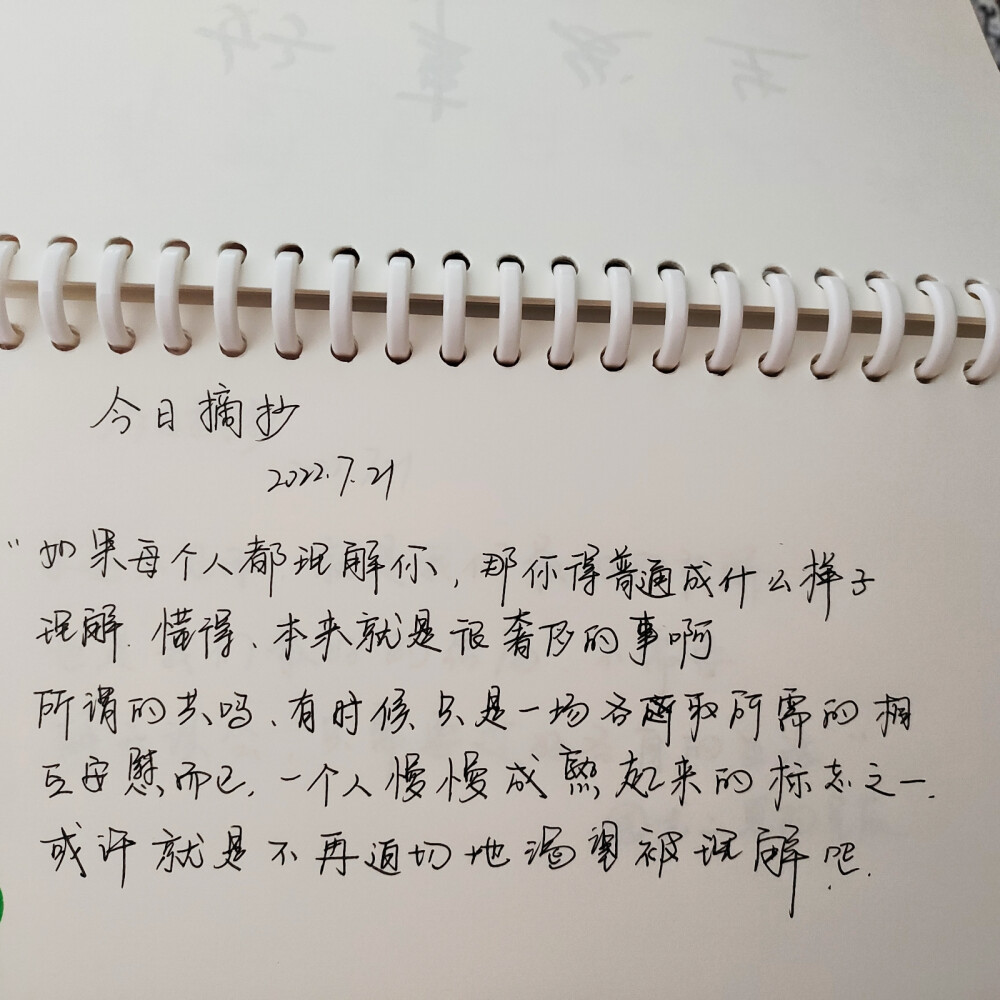 今日摘抄
2022.7.21
"如果每个人都理解你,那你得普通成什么样子
理解.懂得、本来就是很奢侈的事啊
所谓的共鸣、有时候只是一场各取所需的相
互安慰而已,一个人慢慢成熟起来的标志之一.
或许就是不再迫切地渴望被理解吧.